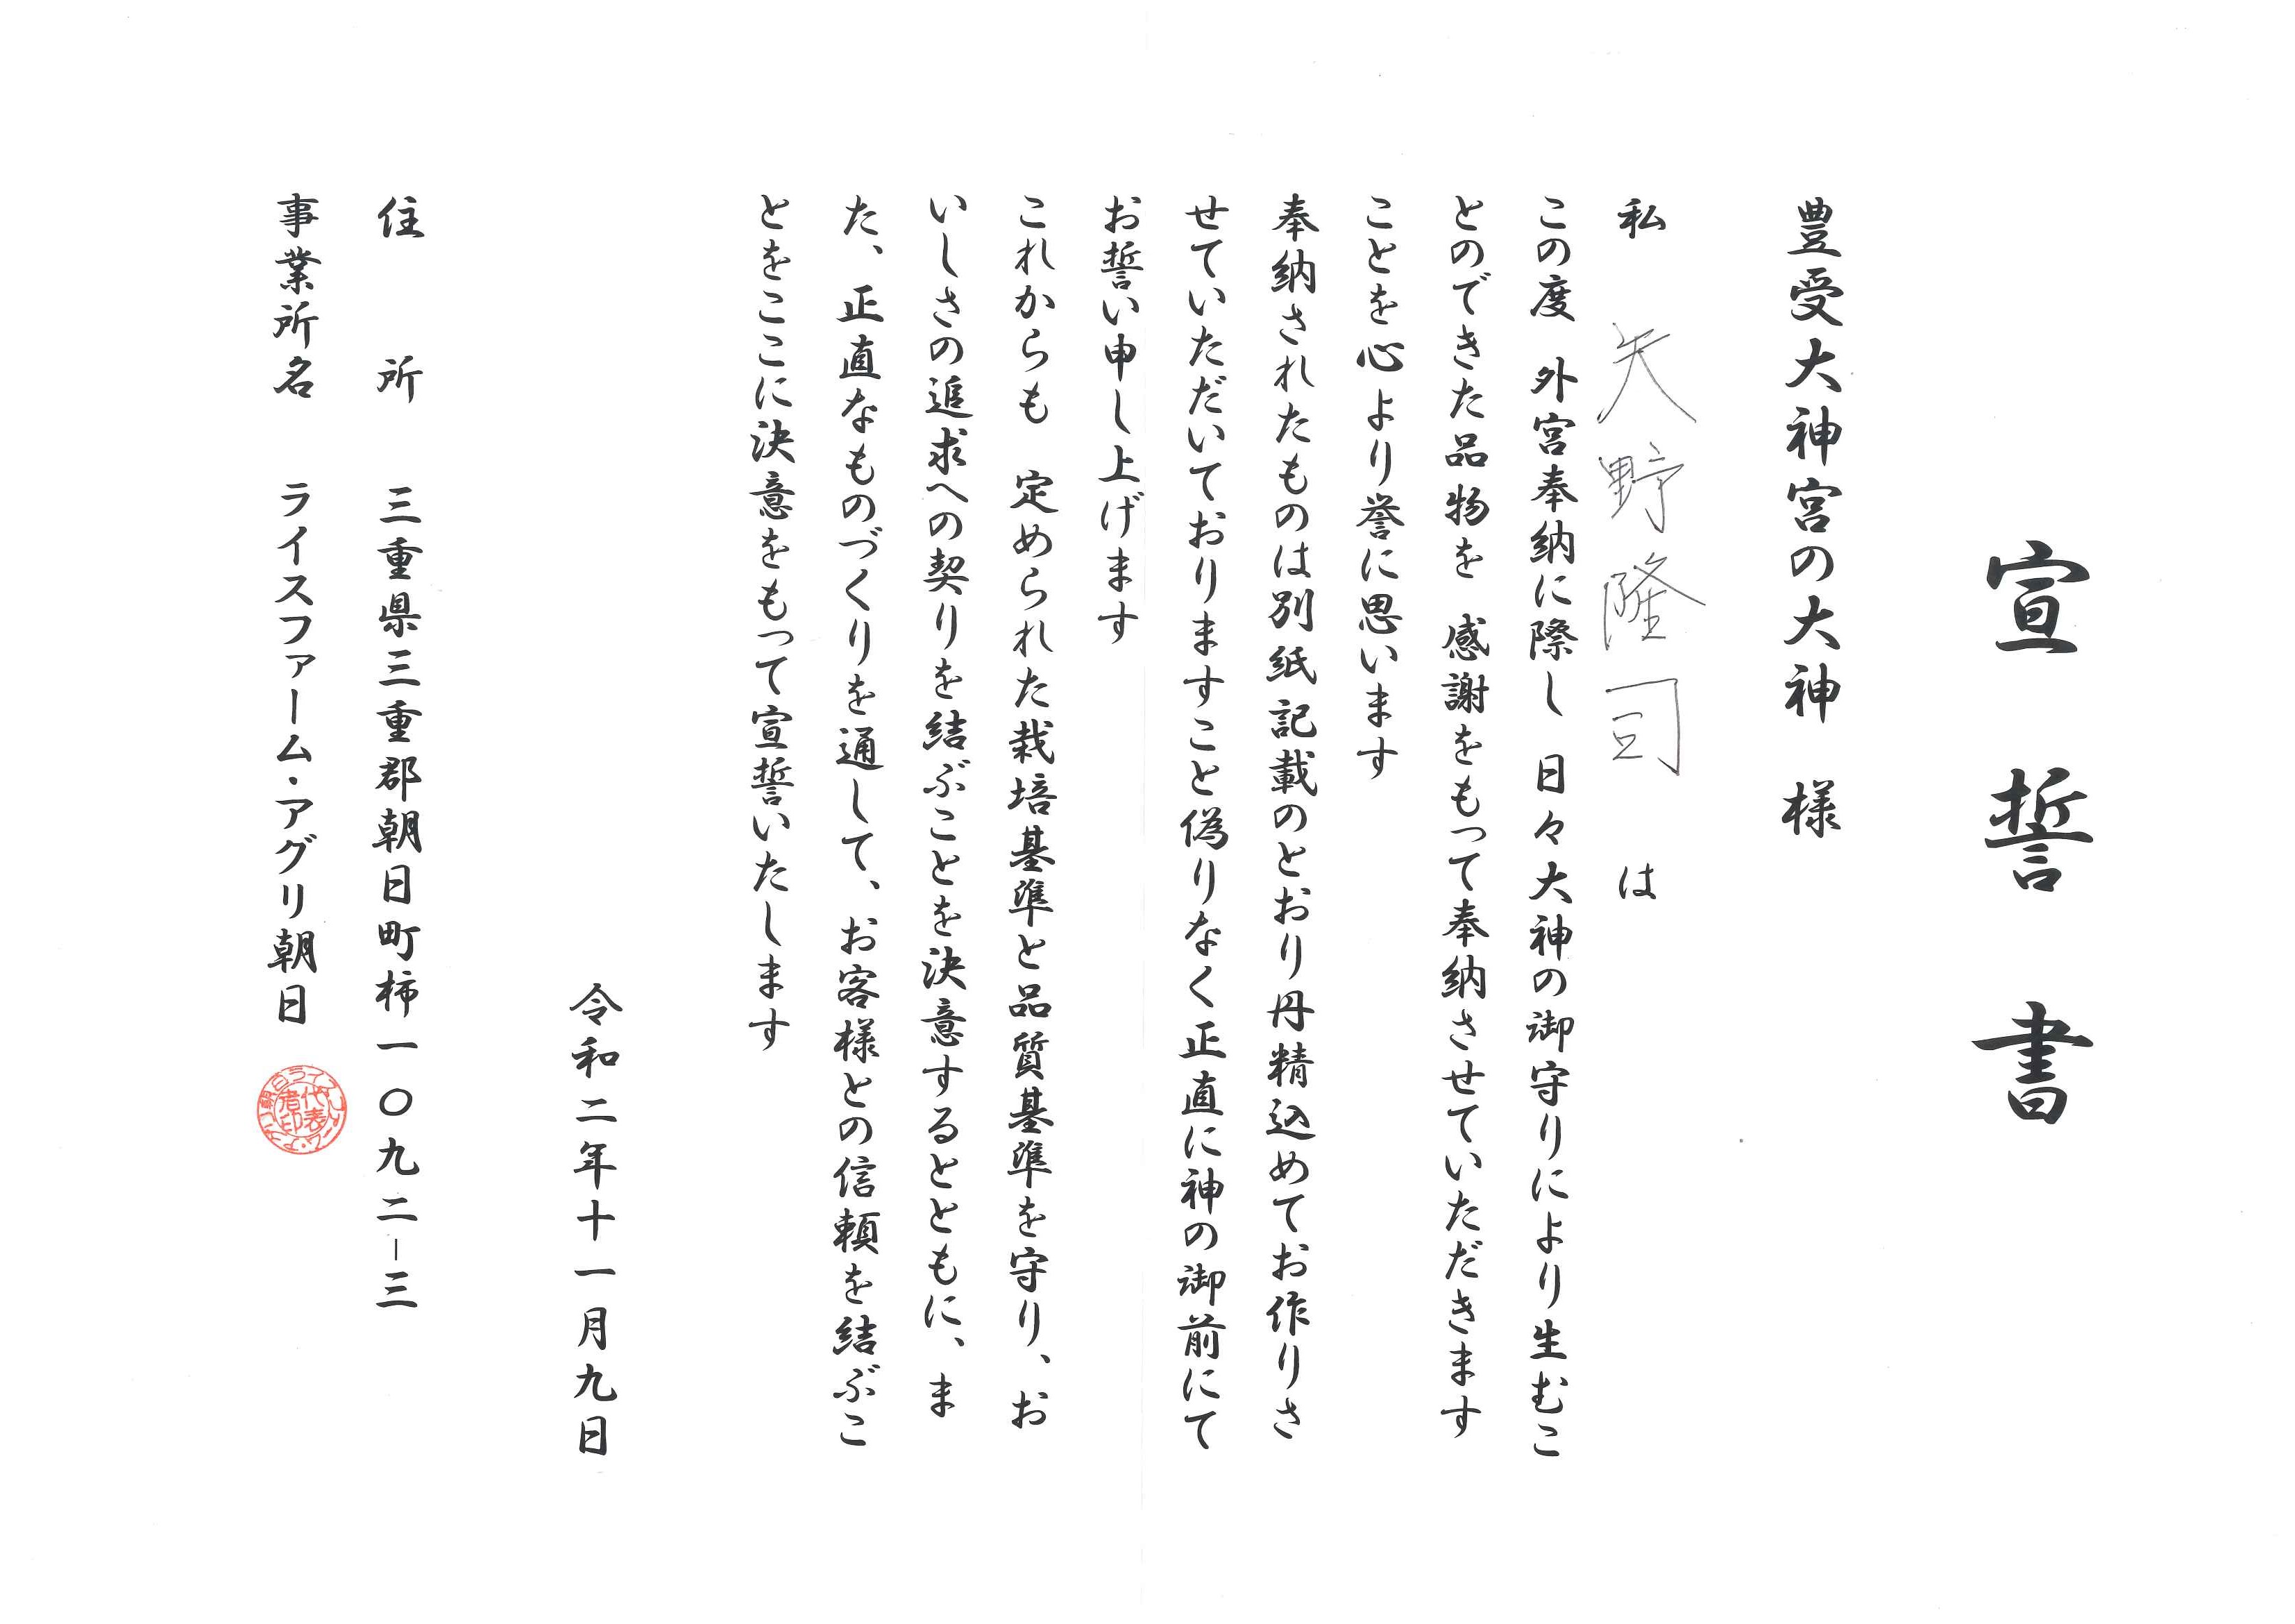 宣誓書
豊受大神宮の大神 様
私 矢野隆司 は
この度 外宮奉納に際し 日々大神の御守りにより生むこ
とのできた品物を 感謝をもって奉納させていただきます
ことを心より誉に思います
奉納されたものは別紙記載のとおり丹精込めてお作りさ
せていただいておりますこと偽りなく正直に神の御前にて
お誓い申し上げます
これからも 定められた栽培基準と品質基準を守り、お
いしさの追求への契りを結ぶことを決意するとともに、ま
た、正直なものづくりを通して、お客様との信頼を結ぶこ
とをここに決意をもって宣誓いたします
令和二年十一月九日
住 所 三重県三重郡朝日町柿一〇九二-三
事業所名 ライスファーム・アグリ朝日
代表者印